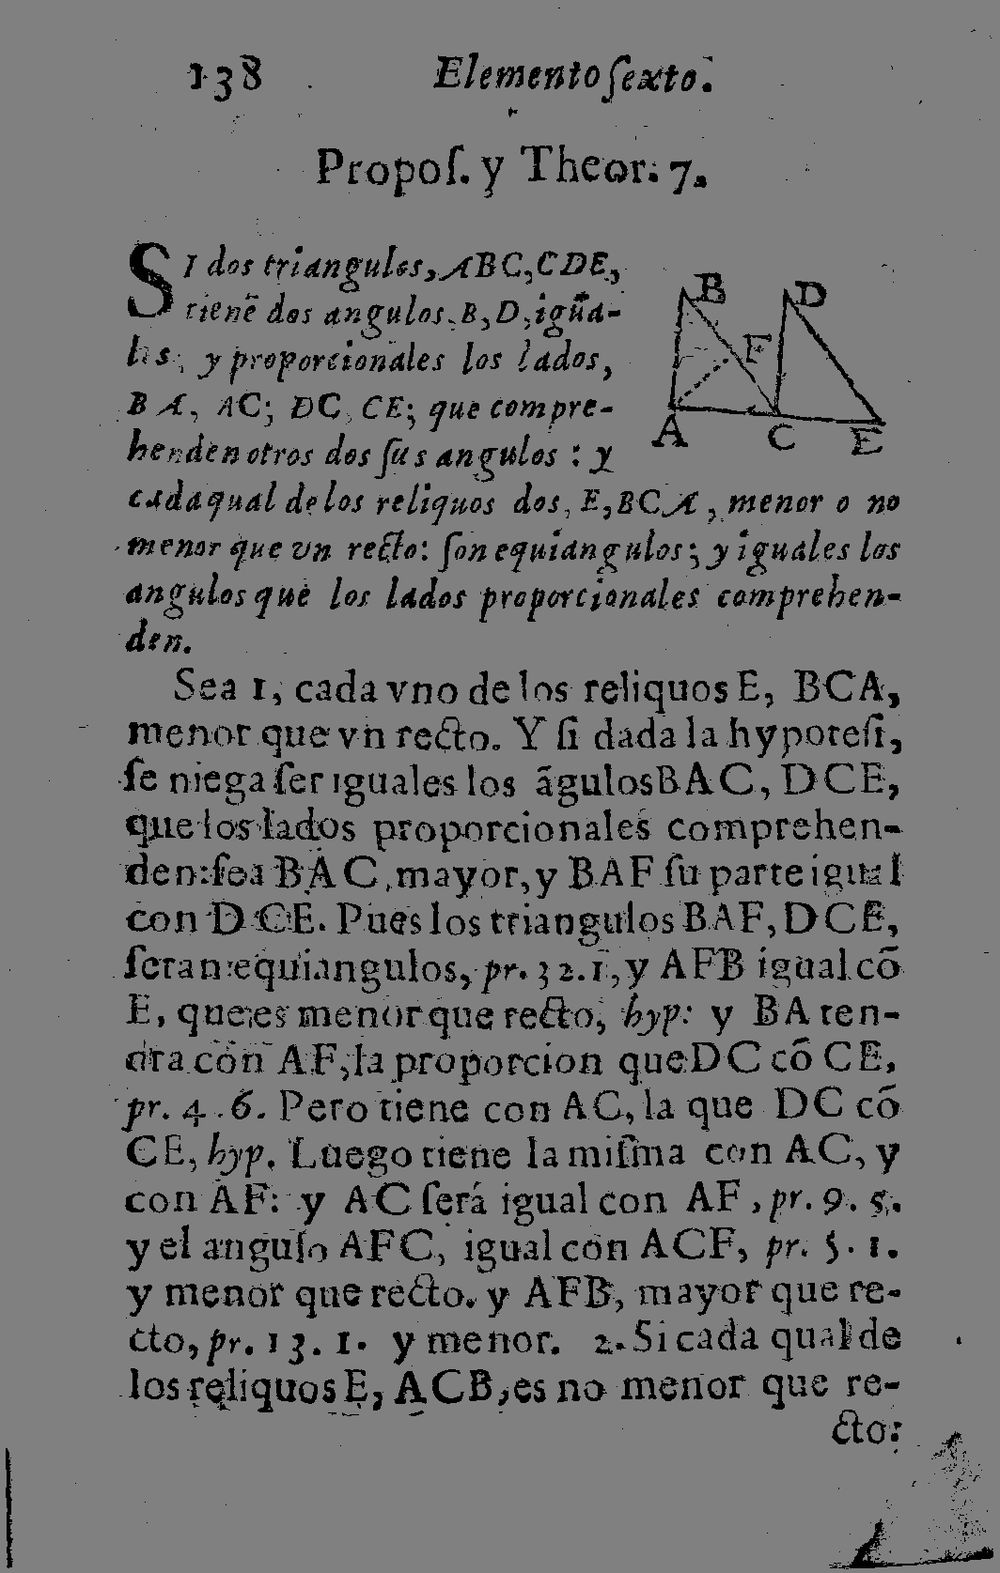 138 Elemento ſexto.
Propoſ. y Theor. 7.
SI dos triangulos, ABC, CDE,
tienē dos angulos, B, D, igūa-
les, y proporcionales los lados,
BA, AC; DC, CE; que compre-
henden otros dos ſus angulos : y
cada qual de los reliquos dos, E, BCA, menor o no
menor que vn recto: ſon equiangulos; y iguales los
angulos que los lados proporcionales comprehen-
den.
B D
F
A C E
Sea 1, cada vno de los reliquos E, BCA,
menor que vn recto. Y ſi dada la hypoteſi,
ſe niega ſer iguales los āgulos BAC, DCE,
que los lados proporcionales comprehen-
den: ſea BAC, mayor, y BAF ſu parte igual
con DCE. Pues los triangulos BAF, DCE,
ſeran equiangulos, pr. 32. 1, y AFB igual cō
E, que es menor que recto, hyp: y BA ten-
dra con AF, la proporcion que DC cō CE,
pr. 4. 6. Pero tiene con AC, la que DC cō
CE, hyp. Luego tiene la miſma con AC, y
con AF: y AC ſerá igual con AF, pr. 9. 5.
y el angulo AFC, igual con ACF, pr. 5. 1.
y menor que recto. y AFB, mayor que re-
cto, pr. 13. 1. y menor. 2. Si cada qual de
los reliquos E, ACB, es no menor que re-
cto: